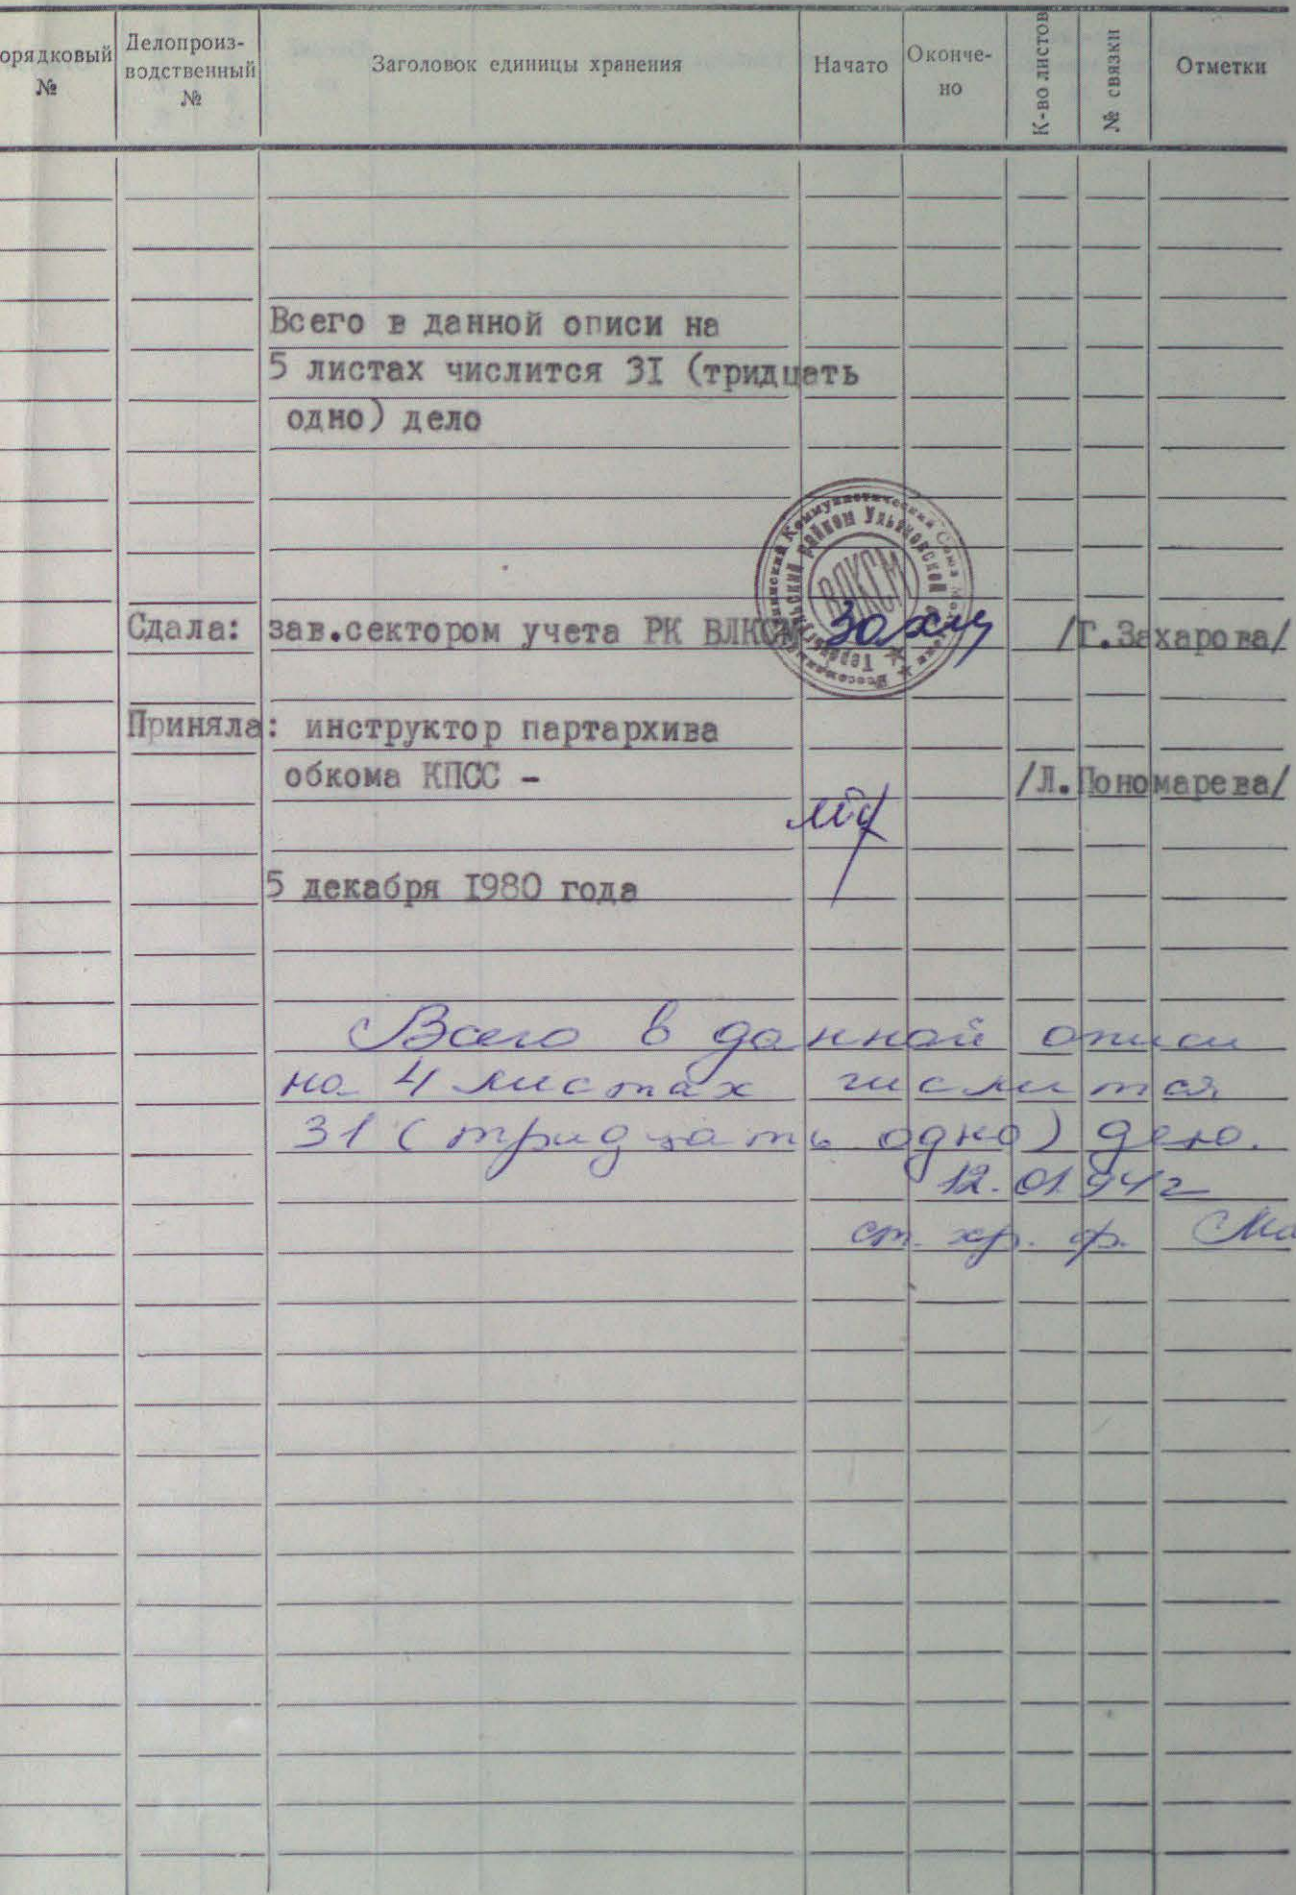 орядковый №
Делопроиз-
водственный
№
Заголовок единицы хранения
Начато
Оконче-
но
К-во листов
№ связки
Отметки
Всего в данной описи на
5 листах числится 3I (тридцать
одно) дело
Ульяновской
райком
ВЛКСМ
Сдала: зав.сектором учета РК ВЛКСМ /Г.Захарова/
Приняла: инструктор партархива
обкома КПСС - /Л.Пономарева/
5 декабря I980 года
Всего в данной описи
на 4 листах числится
31 (тридцать одно) дело.
12.01.94г
ст. хр. ф.